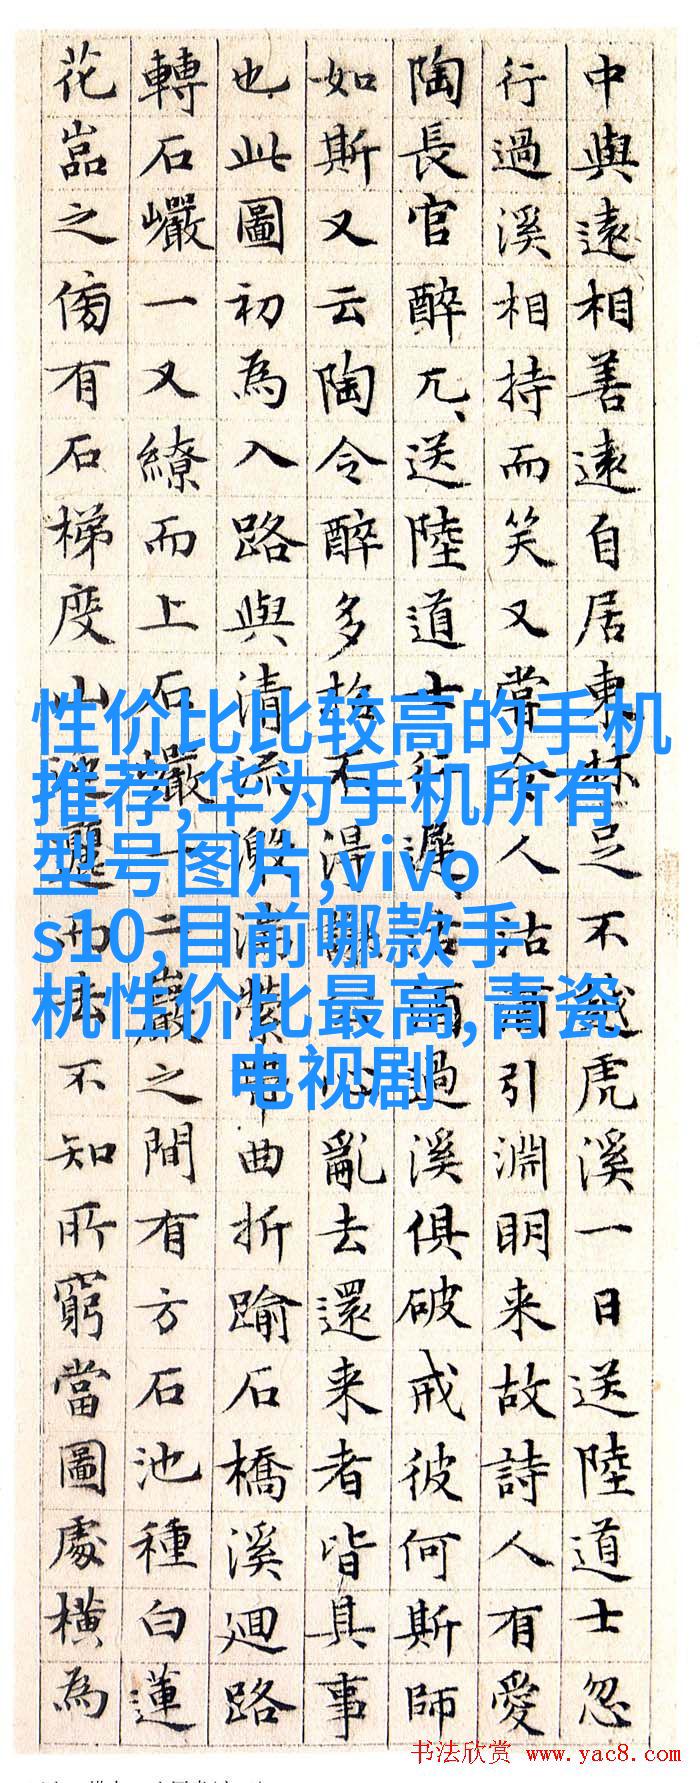 中與遠相善遠自居東林足不越虎溪一日送陸道士忽
行過溪相持而笑又嘗令人沽酒引淵明来故詩人有愛
陶長官醉兀、送陸道士行遲、沽酒過溪俱破戒彼何斯師
如斯又云陶令醉多招不得謝心亂去還来者皆具事
也此圖初為入路與清流激縈帶曲折踰石橋溪迴路
轉石巖一又繚而上石巖一二巖之間有方石池種白蓮
花嵓之傍有石梯度山迤邐而去不知所窮當圖處橫為
性价比比较高的手机
推荐,华为手机所有
型号图片,vivo
s10,目前哪款手
机性价比最高,青瓷
电视剧
书法欣赏 www.yac8.com